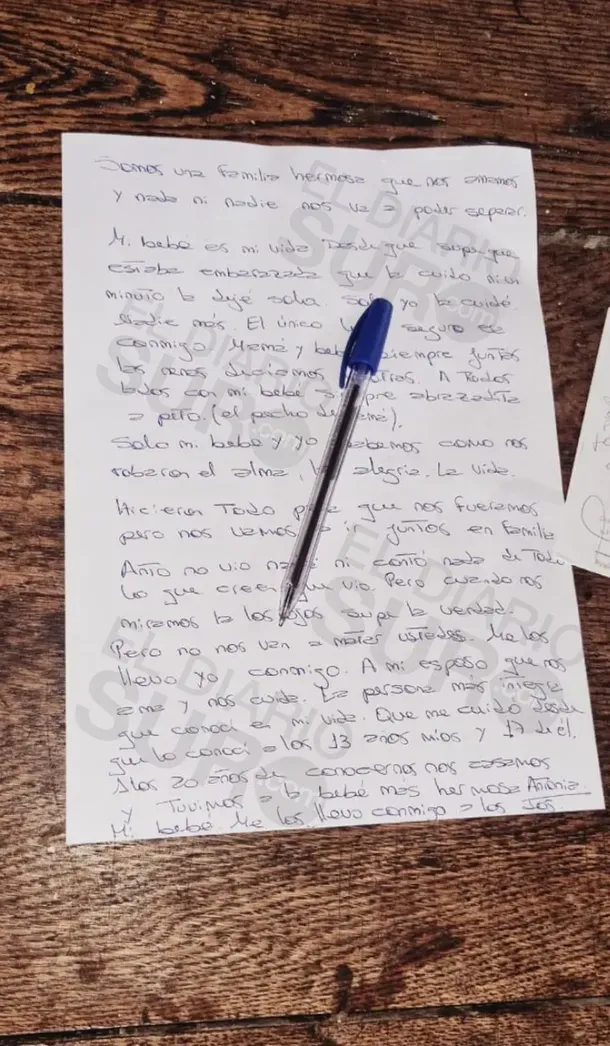 Somos una familia hermosa que nos amamos
y nada ni nadie nos va a poder separar.
Mi bebé es mi vida. Desde que supe que
estaba embarazada que la cuido ni un
minuto la dejé sola. Solo yo la cuidé.
Nadie más. El único seguro es
conmigo. Mamá y bebé siempre juntas
las nenas decíamos A todos
lados con mi bebé abrazadita
a pito (el pecho de mamá).
Solo mi bebé y yo sabemos como nos
robaron el alma, la alegria. La vida.
Hicieron todo para que nos fueramos
pero nos vamos a ir juntos en familia
Anto no vio nada ni contó nada de todo
lo que creen que vio. Pero cuando nos
miramos a los ojos supe la verdad.
Pero no nos van a matar ustedes. Me los
llevo yo conmigo. A mi esposo que nos
ama y nos cuida. La persona más íntegra
que conocí en mi vida. Que me cuidó desde
que lo conocí a los 13 años míos y 17 de él.
A los 20 años de conocernos nos casamos
y tuvimos a la bebé más hermosa Antonia
Mi bebé. Me los llevo conmigo a los dos.
EL DIARIO
SUR.com
EL DIARIO
SUR.com
EL DIARIO
SUR.com
EL DIARIO
SUR.com